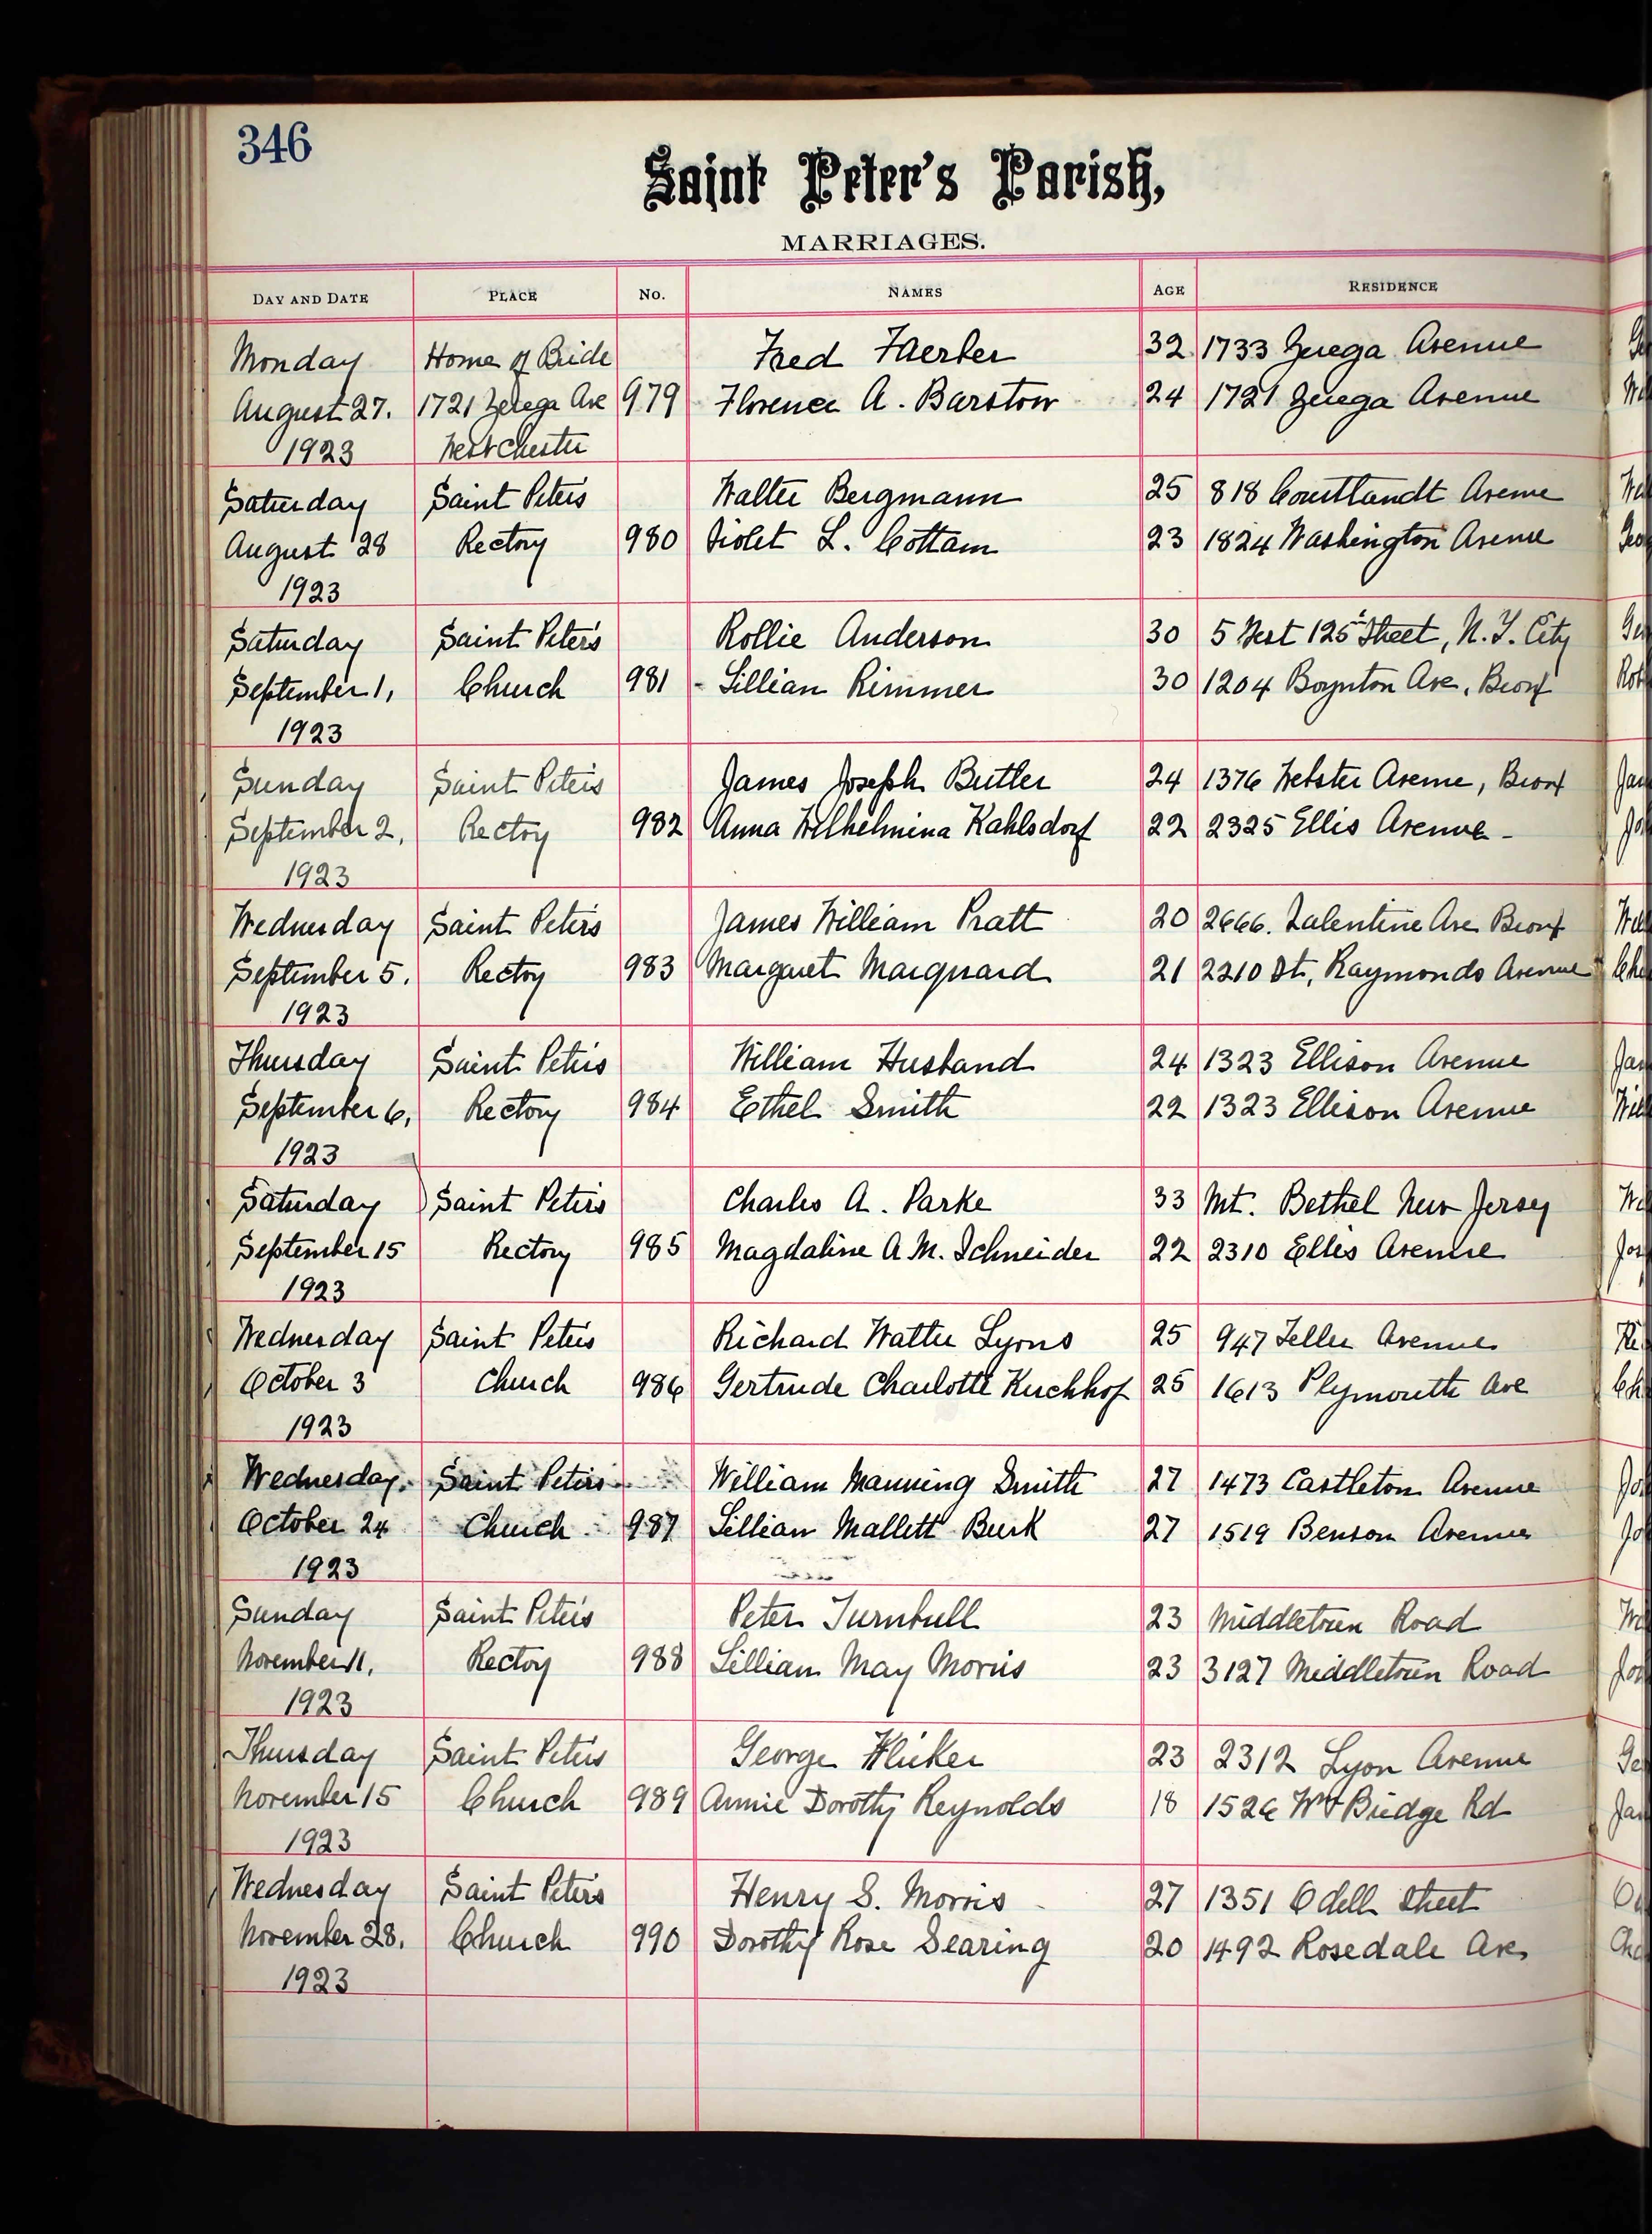 346
Saint Peter's Parish,
MARRIAGES.
DAY AND DATE PLACE No. NAMES AGE RESIDENCE
Monday Home of Bride Fred Faerber 32 1733 Zerega Avenue
August 27. 1721 Zerega Ave 979 Florence A. Barstow 24 1721 Zerega Avenue
1923 Westchester
Saturday Saint Peters Walter Bergmann 25 818 Courtlandt Avenue
August 28 Rectory 980 Violet L. Cottam 23 1824 Washington Avenue
1923
Saturday Saint Peter's Rollie Anderson 30 5 West 125 Street, N.Y. City
September 1, Church 981 - Lillian Rimmer 30 1204 Boynton Ave, Bronx
1923
Sunday Saint Peters James Joseph Butler 24 1376 Webster Avenue, Bronx
September 2, Rectory 982 Anna Wilhelmina Kahlsdorf 22 2325 Ellis Avenue -
1923
Wednesday Saint Peters James William Pratt 20 2666. Valentine Ave Bronx
September 5. Rectory 983 Margaret Marquard 21 2210 St, Raymonds Avenue
1923
Thursday Saint Peters William Husband 24 1323 Ellison Avenue
September 6, Rectory 984 Ethel Smith 22 1323 Ellison Avenue
1923
Saturday Saint Peters Charles A. Parke 33 Mt. Bethel New Jersey
September 15 Rectory 985 Magdaline A. M. Schneider 22 2310 Ellis Avenue
1923
Wednesday Saint Peters Richard Walter Lyons 25 947 Teller Avenue
October 3 Church 986 Gertrude Charlotte Kirchhof 25 1613 Plymouth Ave
1923
Wednesday. Saint Peters William Manning Smith 27 1473 Castleton Avenue
October 24 Church 987 Lillian Mallett Burk 27 1519 Benson Avenue
1923
Sunday Saint Peter's Peter Turnbull 23 Middletown Road
November 11, Rectory 988 Lillian May Morris 23 3127 Middletown Road
1923
Thursday Saint Peters George Flicker 23 2312 Lyon Avenue
November 15 Church 989 Annie Dorothy Reynolds 18 1526 Bridge Rd
1923
Wednesday Saint Peters Henry S. Morris 27 1351 Odell Street
November 28. Church 990 Dorothy Rose Dearing 20 1492 Rosedale Ave
1923